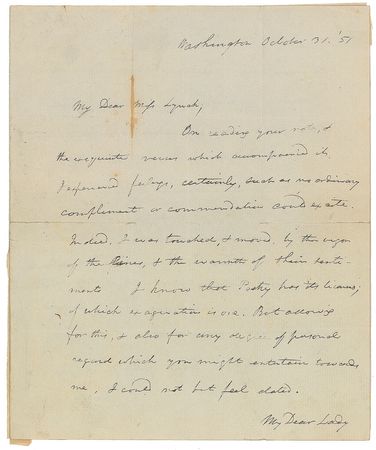 Washington October 31. '51
My Dear Miss Lynch,
On reading your note, &
the exquisite verses which accompanied it,
I experienced feelings, certainly, such as no ordinary
compliment or commendation could excite.
Indeed, I was touched, & moved, by the vigor
of the lines, & the warmth of their senti-
ments I know that Poetry has its licenses;
of which exageration is one. But allowing
for this, & also for any degree of personal
regard which you might entertain towards
me, I could not but feel elated.
My Dear Lady